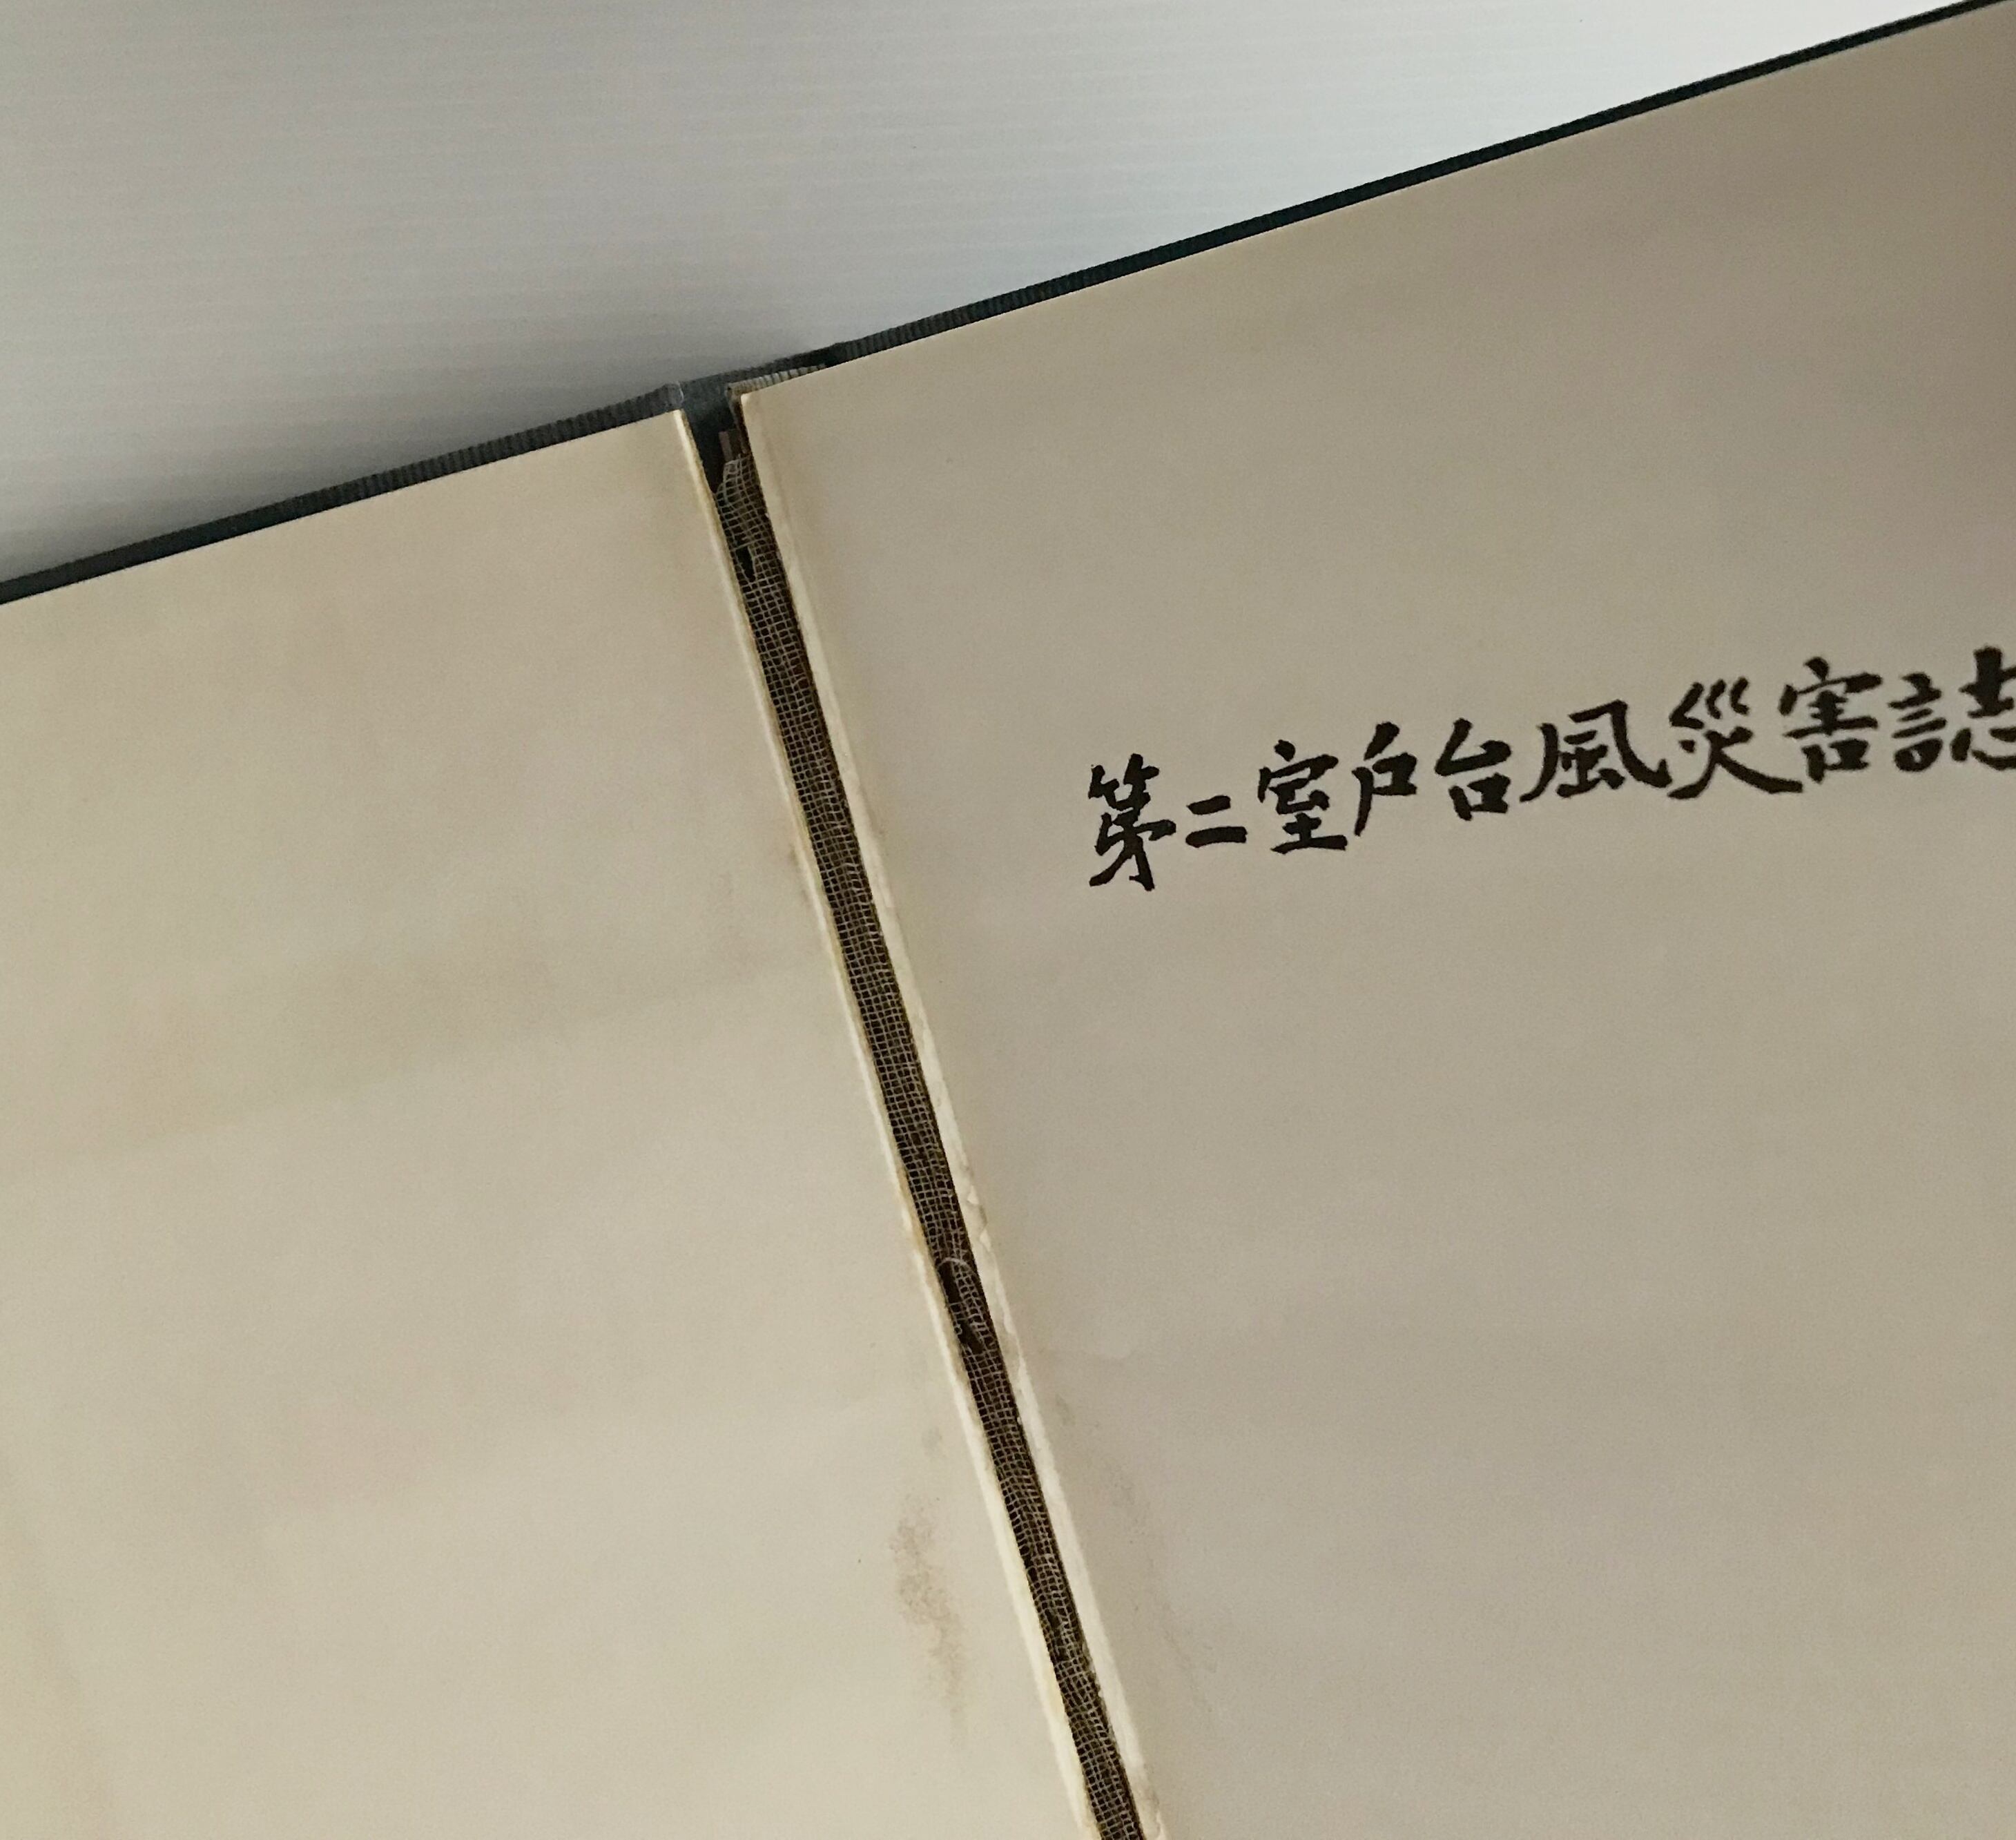 第二室戸台風災害誌